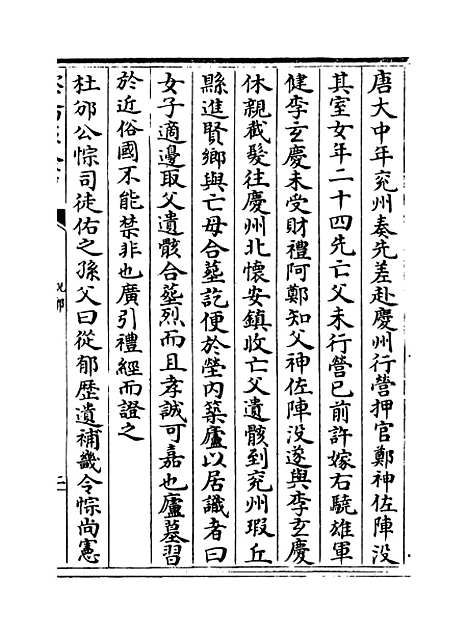 唐大中年兖州奏先差赴慶州行營押官鄭神佐陣没
其室女年二十四先亡父未行營已前許嫁右驍雄軍
健李玄慶未受財禮阿鄭知父神佐陣没遂與李玄慶
休親截髮往慶州北懷安鎮收亡父遺骸到兖州瑕丘
縣進賢鄉與亡母合葬訖便於塋内築廬以居識者曰
女子適邊取父遺骸合葬烈而且孝誠可嘉也廬墓習
於近俗國不能禁非也廣引禮經而證之
杜邠公悰司徒佑之孫父曰從郁歴遺補畿令悰尚憲
說郛
二